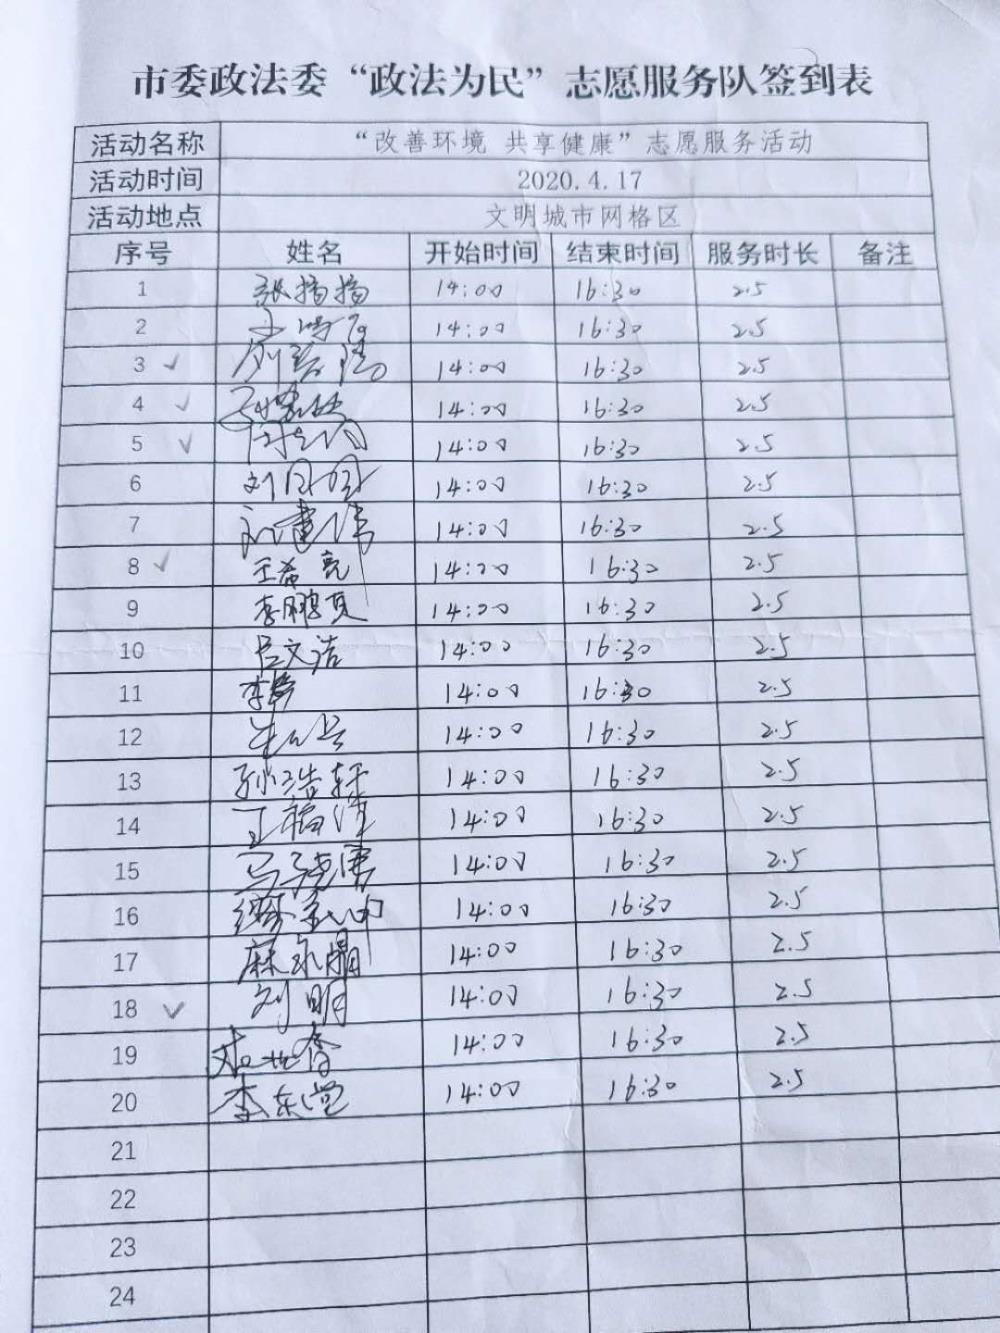 市委政法委“政法为民”志愿服务队签到表
活动名称 “改善环境 共享健康”志愿服务活动
活动时间 2020.4.17
活动地点 文明城市网格区
序号 姓名 开始时间 结束时间 服务时长 备注
1 张 14:00 16:30 2.5
2 14:00 16:30 2.5
3 ✓ 刘 14:00 16:30 2.5
4 ✓ 14:00 16:30 2.5
5 ✓ 14:00 16:30 2.5
6 刘 14:00 16:30 2.5
7 刘建伟 14:00 16:30 2.5
8 ✓ 王希亮 14:00 16:30 2.5
9 李鹏 14:00 16:30 2.5
10 吕文洁 14:00 16:30 2.5
11 李 14:00 16:30 2.5
12 14:00 16:30 2.5
13 孙浩轩 14:00 16:30 2.5
14 王福 14:00 16:30 2.5
15 马 14:00 16:30 2.5
16 14:00 16:30 2.5
17 麻永娟 14:00 16:30 2.5
18 ✓ 刘明 14:00 16:30 2.5
19 14:00 16:30 2.5
20 李东堂 14:00 16:30 2.5
21
22
23
24